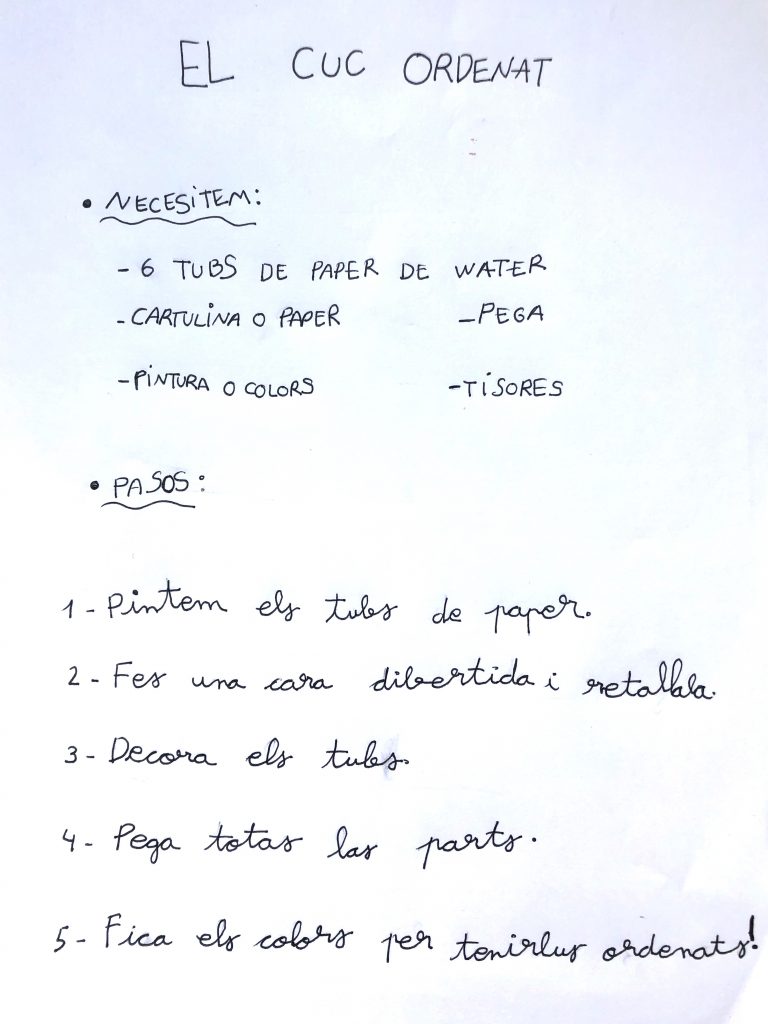 EL CUC ORDENAT
• NECESITEM:
- 6 TUBS DE PAPER DE WATER
- CARTULINA O PAPER - PEGA
- PINTURA O COLORS - TISORES
• PASOS:
1 - Pintem els tubs de paper.
2 - Fes una cara dibertida i retallala.
3 - Decora els tubs.
4 - Pega totas las parts.
5 - Fica els colors per tenirlus ordenats!